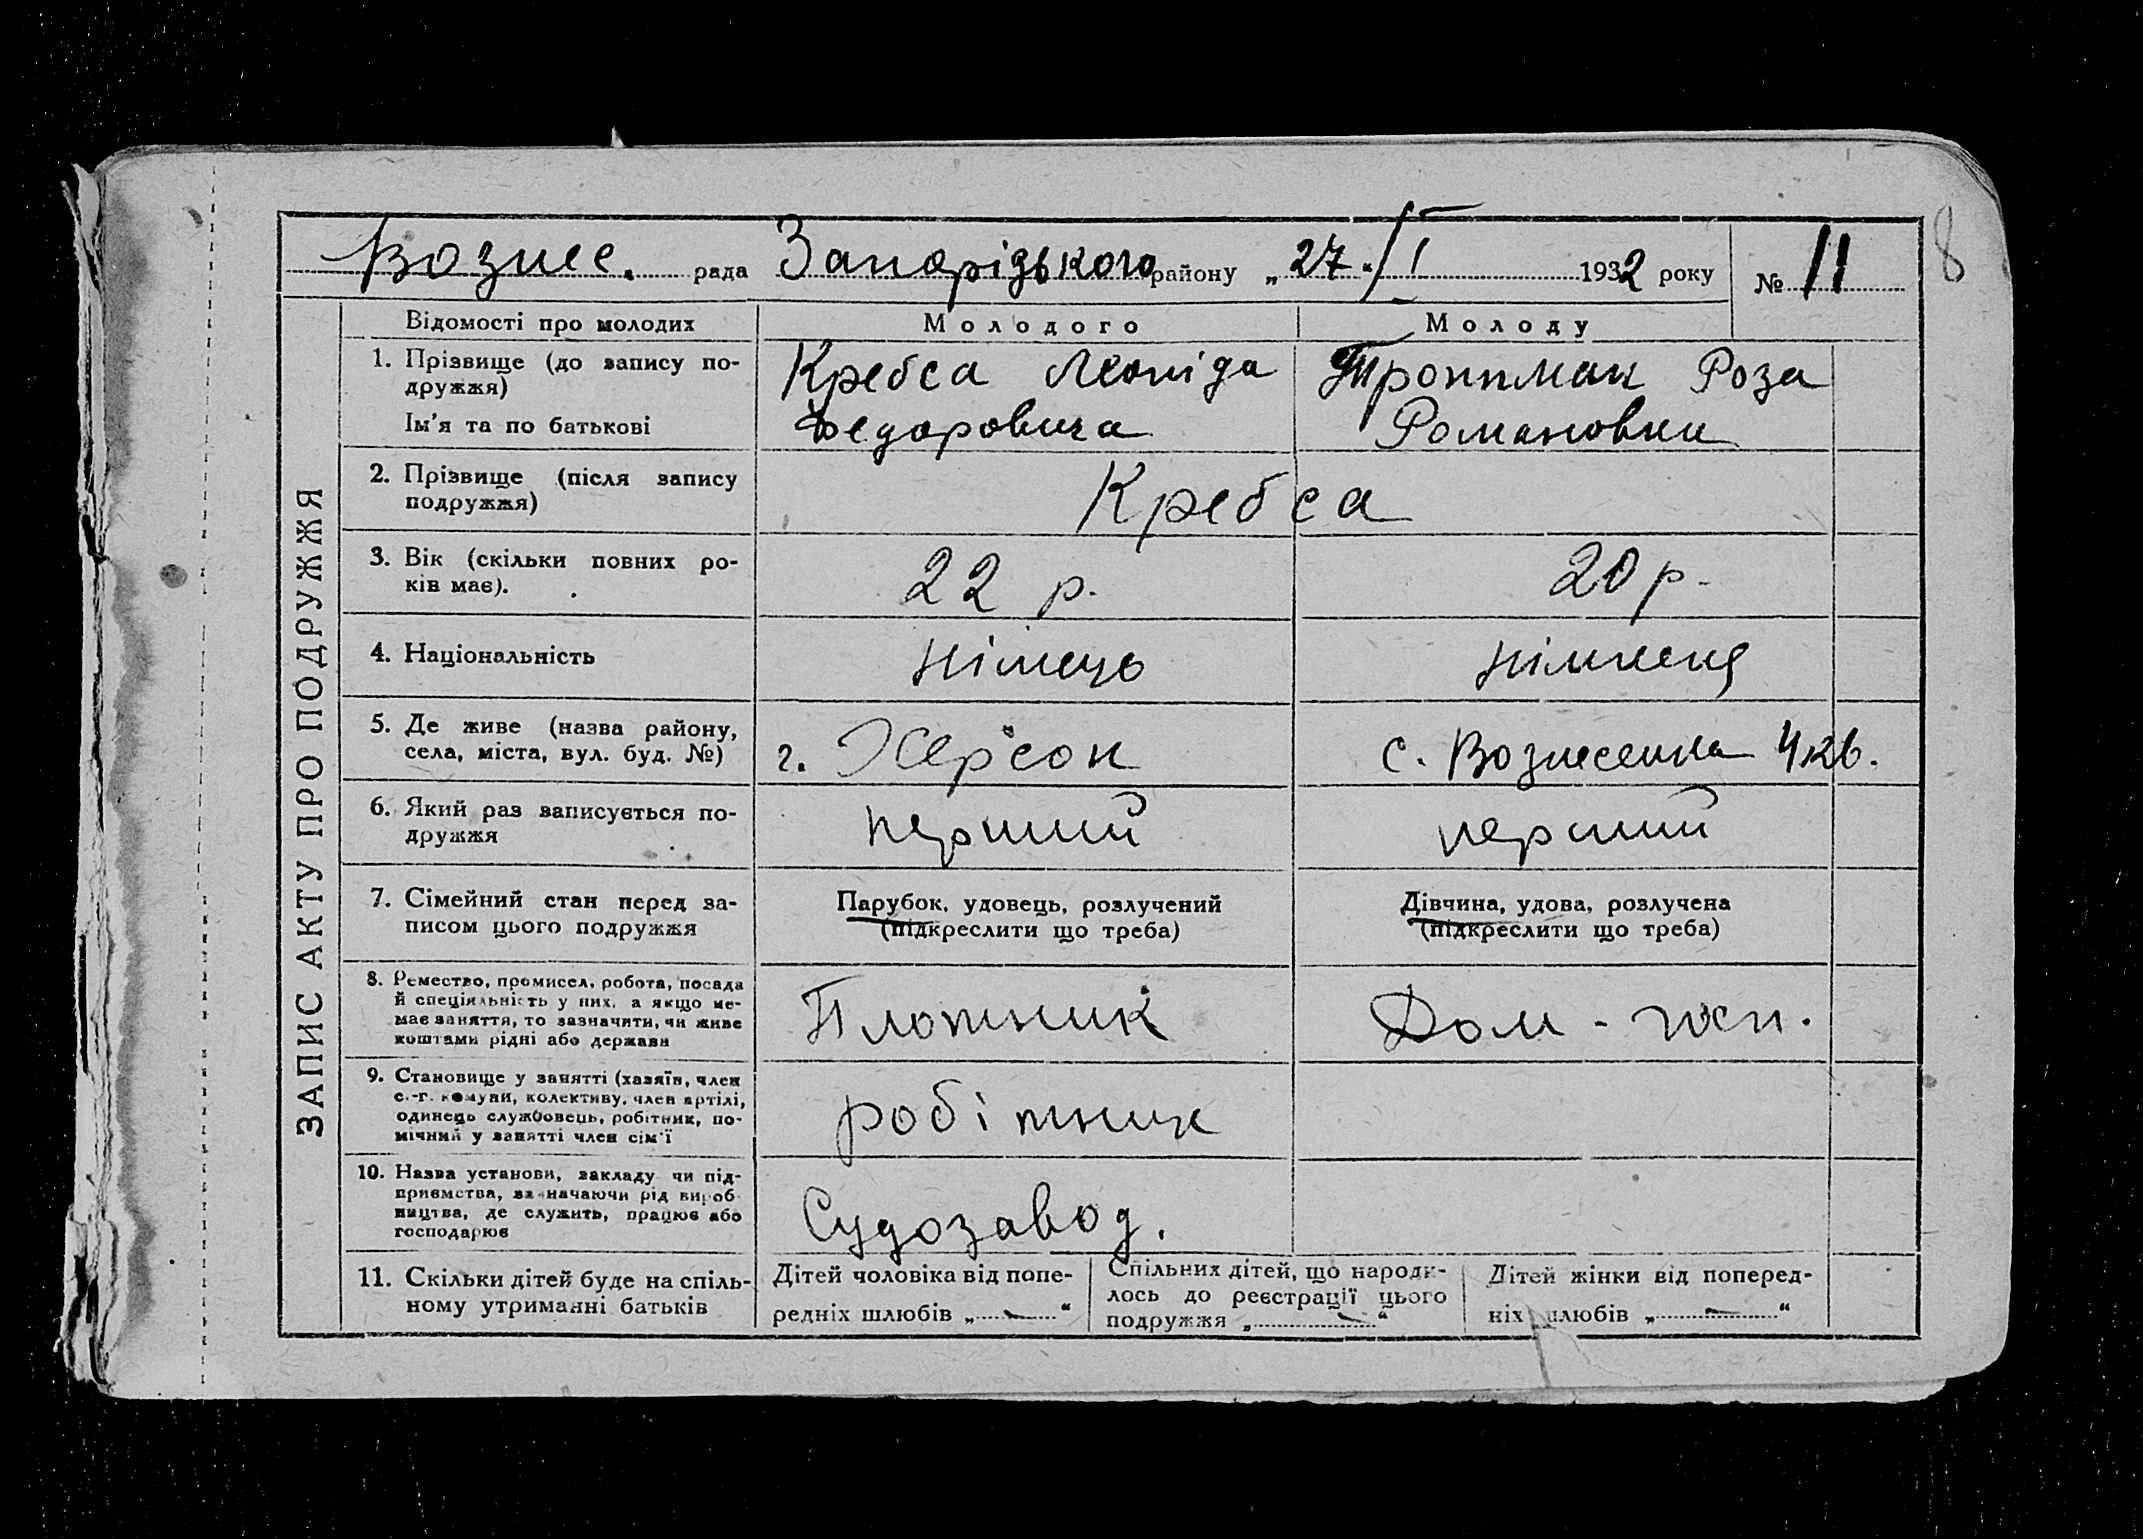 8
Вознес. рада Запорізького району „27“/I 1932 року № 11
ЗАПИС АКТУ ПРО ПОДРУЖЖЯ
Відомості про молодих Молодого Молоду
1. Прізвище (до запису по-
дружжя)
Ім'я та по батькові
Кребса Леоніда
Федоровича
Троппман Роза
Романовни
2. Прізвище (після запису
подружжя)
Кребса
3. Вік (скільки повних ро-
ків має).
22 р.
20 р.
4. Національність
німець
німкеня
5. Де живе (назва району,
села, міста, вул. буд. №)
г. Херсон
с. Вознесенка 4 кв.
6. Який раз записується по-
дружжя
перший
перший
7. Сімейний стан перед за-
писом цього подружжя
Парубок, удовець, розлучений
(підкреслити що треба)
Дівчина, удова, розлучена
(підкреслити що треба)
8. Ремество, промисел, робота, посада
й спеціяльність у них, а якщо не-
має заняття, то зазначити, чи живе
коштами рідні або держави
Плотник
Дом-госп.
9. Становище у занятті (хазяїн, член
с.-г. комуни, колективу, член артілі,
одинець службовець, робітник, по-
мічний у занятті член сім'ї
робітник
10. Назва установи, закладу чи під-
приємства, зазначаючи рід вироб-
ництва, де служить, працює або
господарює
Судозавод.
11. Скільки дітей буде на спіль-
ному утриманні батьків
Дітей чоловіка від попе-
редніх шлюбів „—“
Спільних дітей, що народи-
лось до реєстрації цього
подружжя „—“
Дітей жінки від поперед-
ніх шлюбів „—“